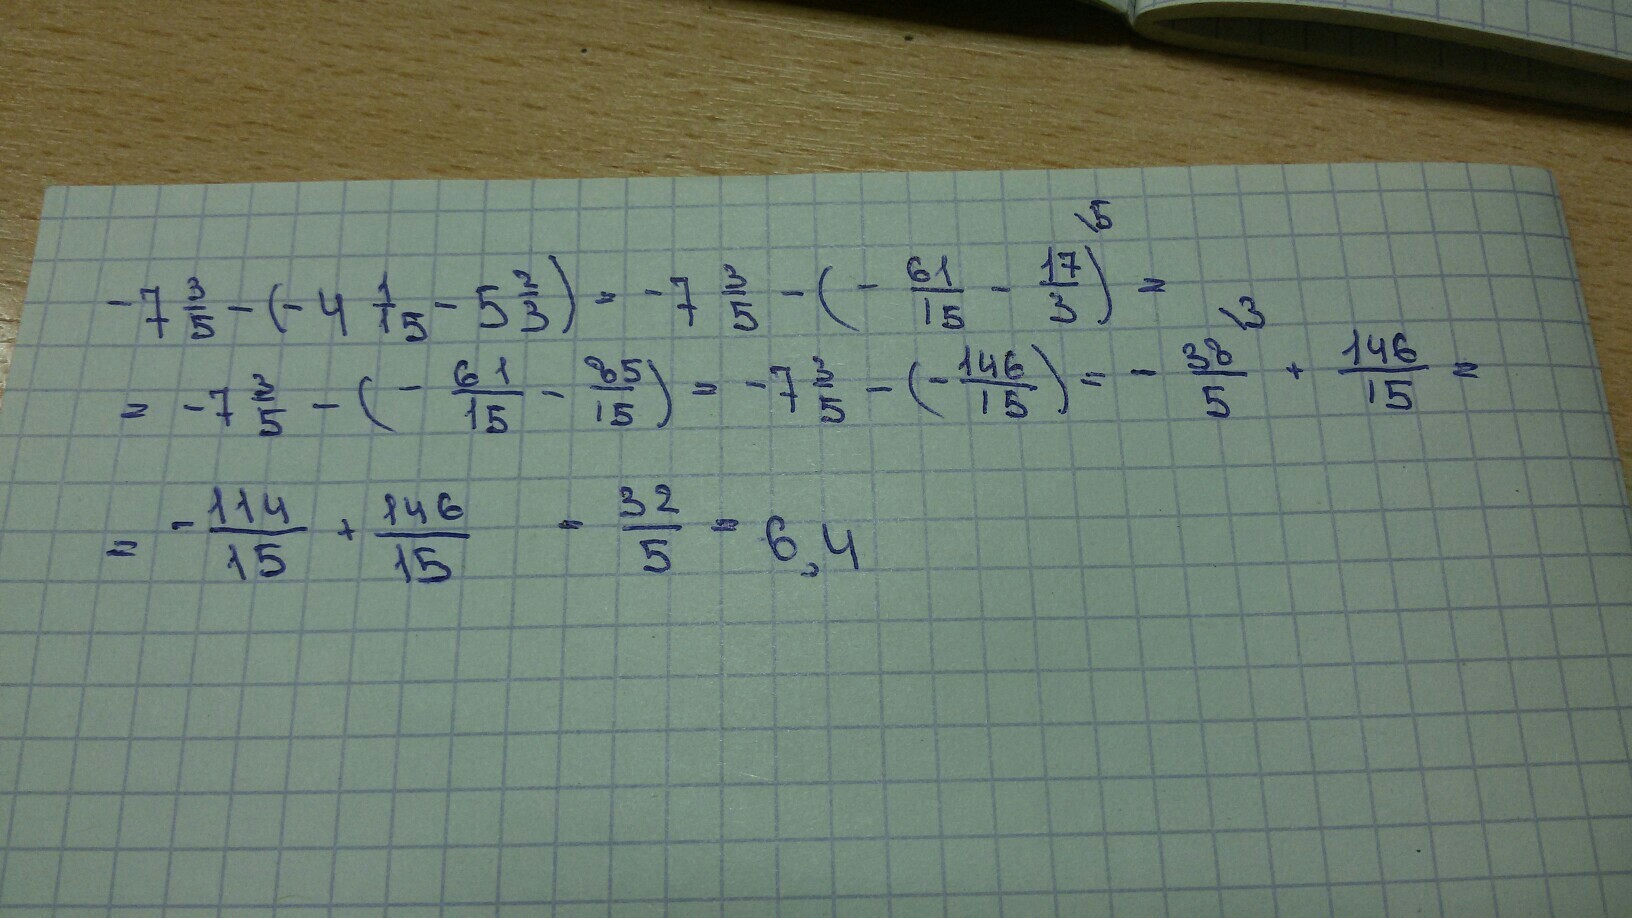 -7 3/5 - (-4 1/15 - 5 2/3) = -7 3/5 - (- 61/15 - 17/3 \5) =
= -7 3/5 - (- 61/15 - 85/15) = -7 3/5 - (- 146/15) = - 38/5 \3 + 146/15 =
= - 114/15 + 146/15 = 32/5 = 6,4